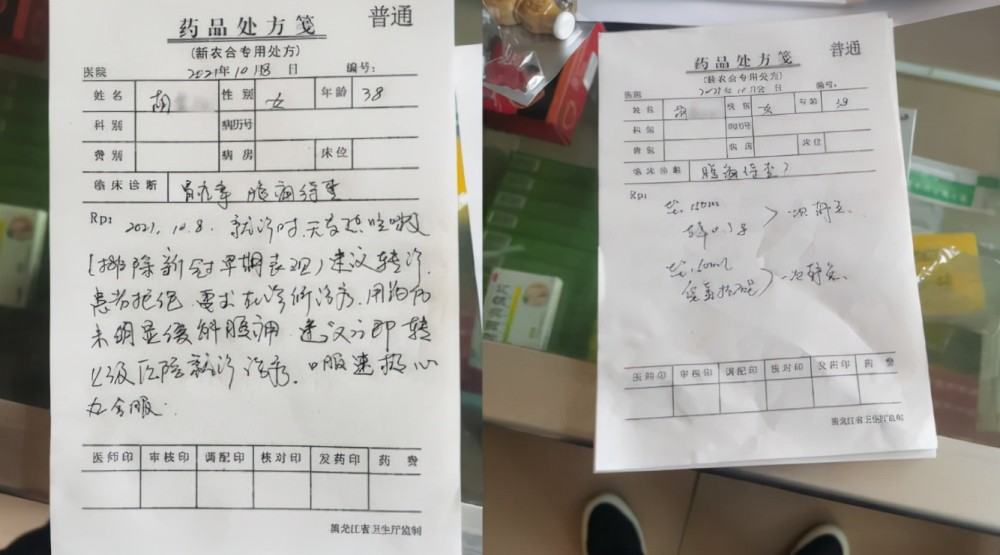 普通
药品处方笺
(新农合专用处方)
医院 2021年10月8日 编号:
姓名 胡 性别 女 年龄 38
科别 病历号
费别 病房 床位
临床诊断 腹痛待查
Rp:
2021.10.8. 就诊时无发热咳嗽
(排除新冠早期表现)建议转诊.
患者拒绝.要求在诊所治疗.用药后
未明显缓解腹痛.建议立即转
上级医院就诊治疗.口服速效心
医师印 审核印 调配印 核对印 发药印 药费
黑龙江省卫生厅监制
普通
药品处方笺
(新农合专用处方)
医院 2021年10月8日 编号:
姓名 胡 性别 女 年龄 38
科别 病历号
费别 病房 床位
临床诊断 腹痛待查?
Rp:
150ml
0.3g 一次静点
一次静点
医师印 审核印 调配印 核对印 发药印 药费
黑龙江省卫生厅监制